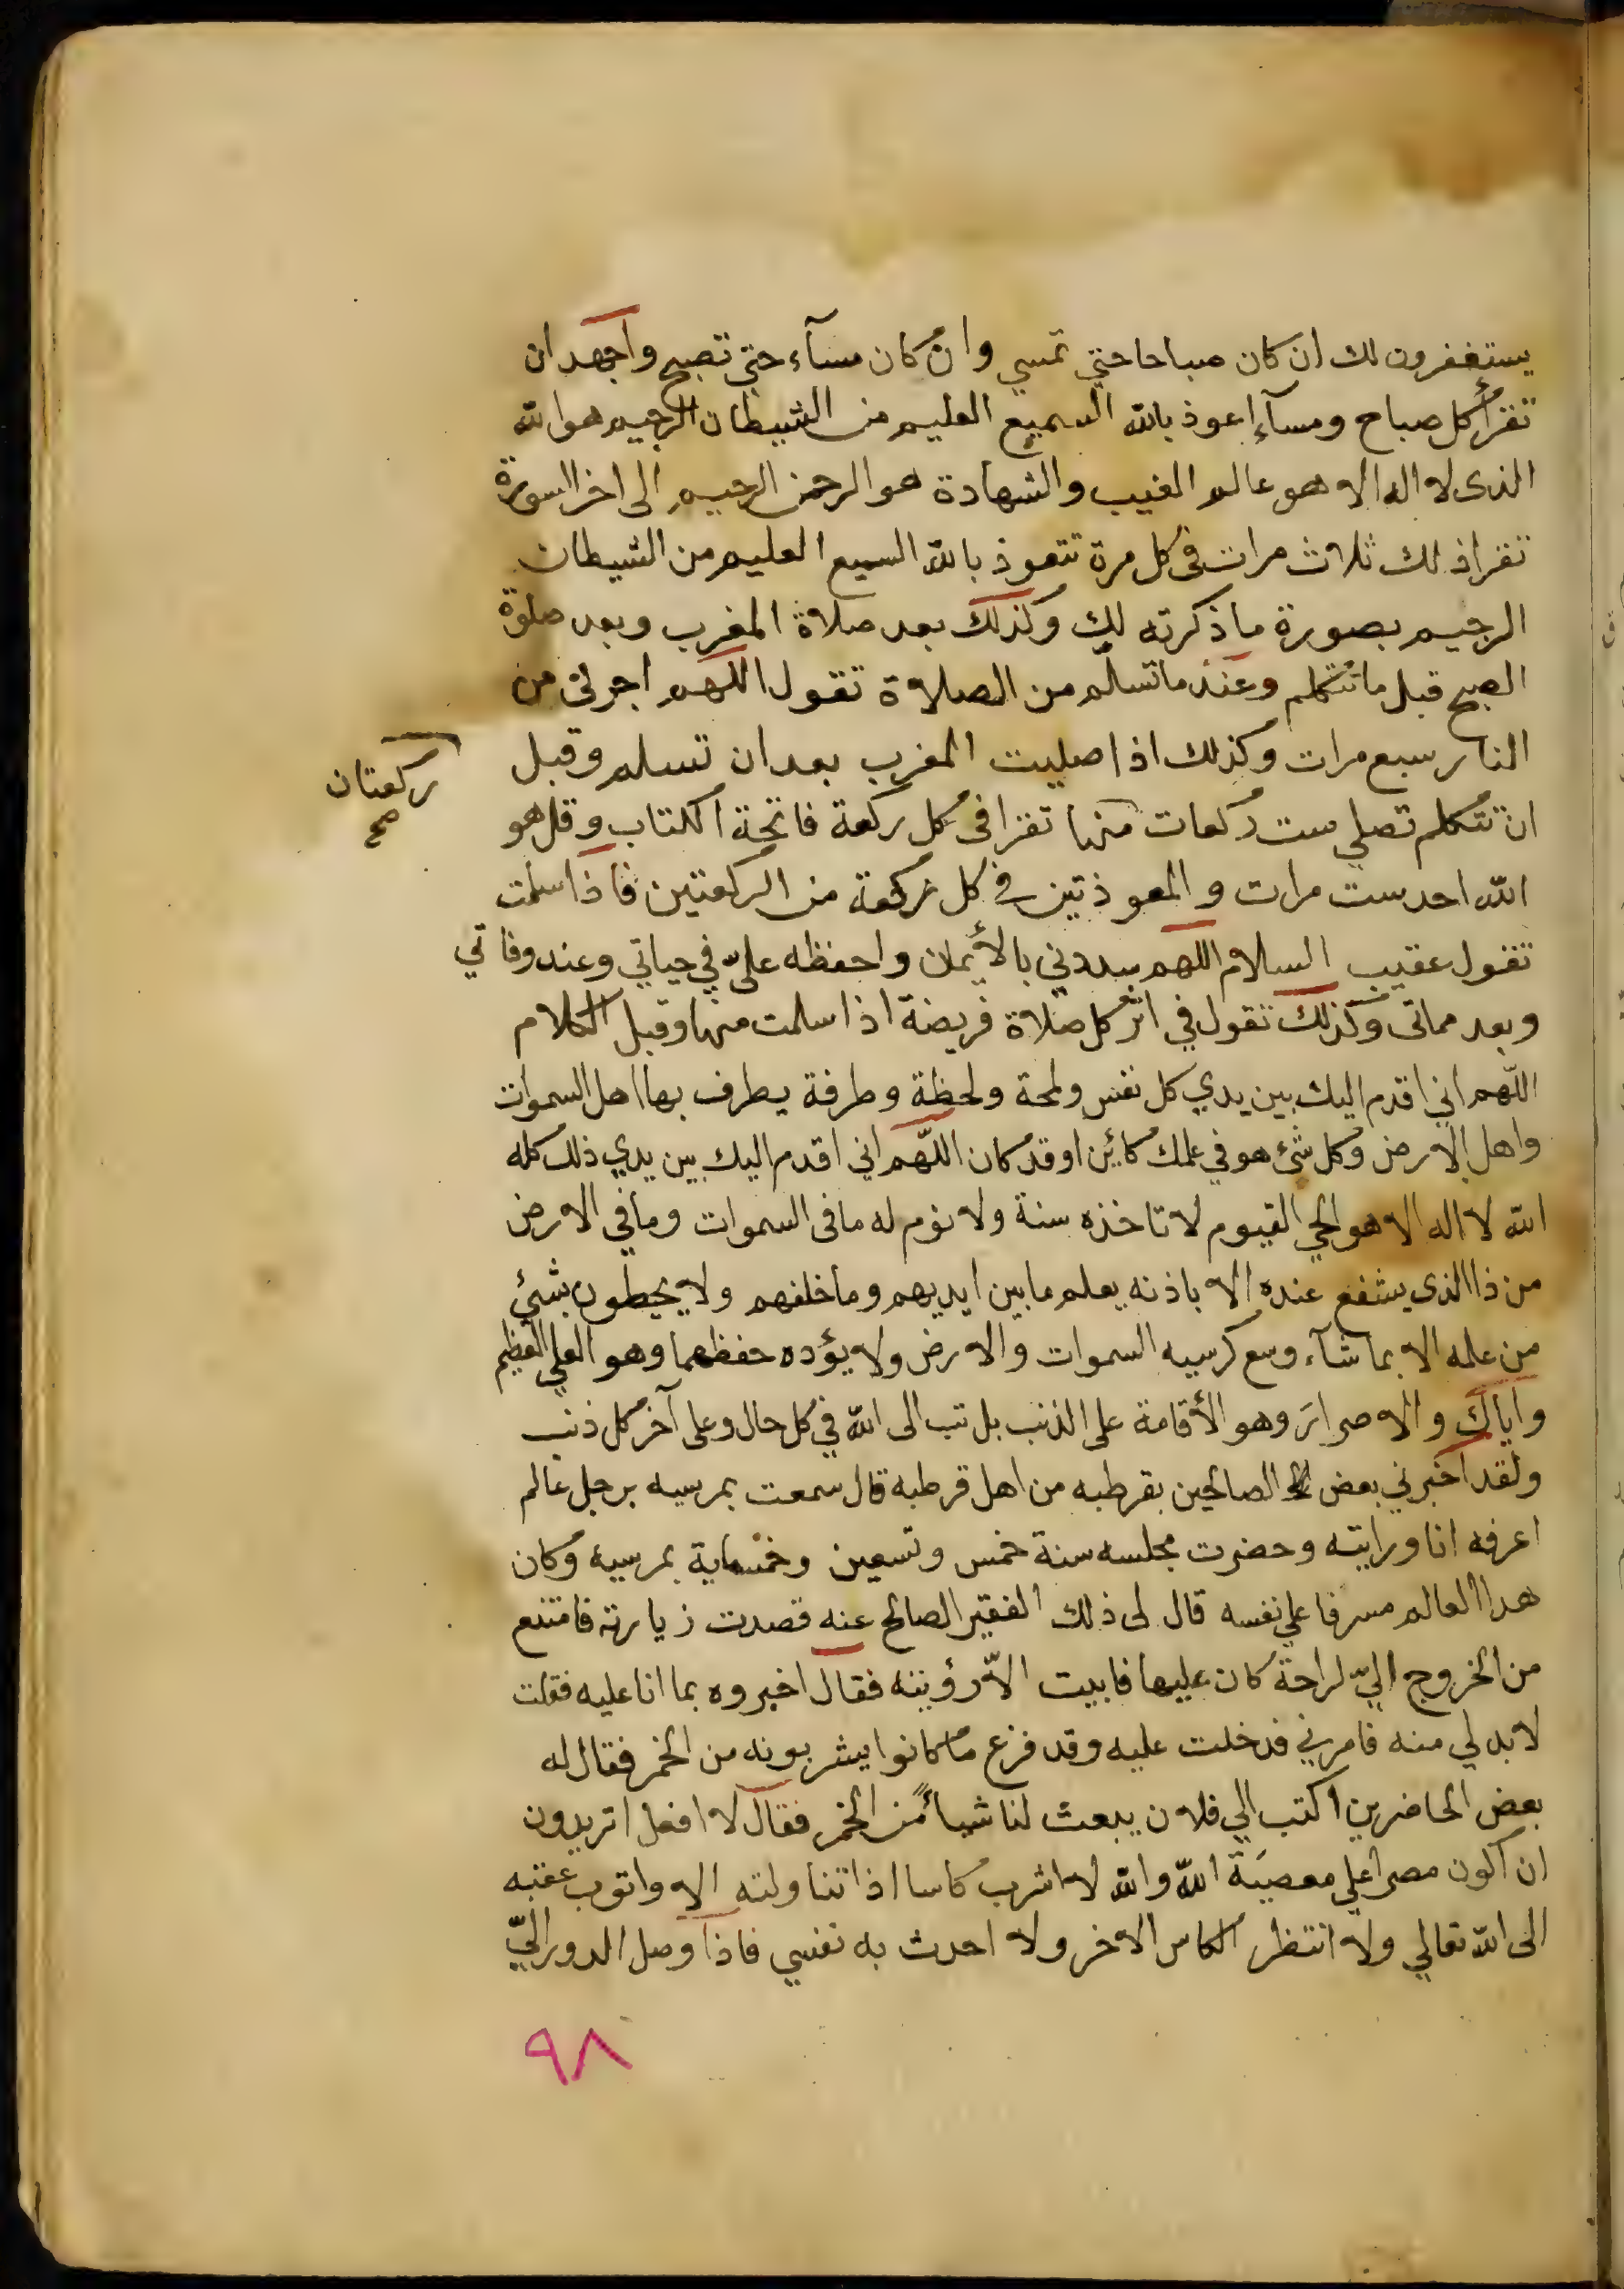 يستغفرون لك ان كان صباحا حتي تمسي وان كان مسآء حتي تصبح واجهد ان
تقرأ كل صباح ومسآءٍ اعوذ بالله السميع العليم من الشيطان الرجيم هو الله
الذى لا اله الا هو عالم الغيب والشهادة هو الرحمن الرحيم الى اخر السورة
تقرا ذلك ثلاث مرات فى كل مرة تتعوذ بالله السميع العليم من الشيطان
الرجيم بصورة ما ذكرته لك وكذلك بعد صلاة المغرب وبعد صلوة
الصبح قبل ما تتكلم وعند ما تسلم من الصلاة تقول اللهم اجرنى من
النار سبع مرات وكذلك اذا صليت المغرب بعد ان تسلم وقبل
ركعتان
صح
ان تتكلم تصلي ست ركعات منها تقرا فى كل ركعة فاتحة الكتاب وقل هو
الله احد ست مرات والمعوذتين في كل ركعة من الركعتين فاذا سلمت
تقول عقيب السلام اللهم سددني بالأيمان واحفظه عليّ في حياتي وعند وفاتي
وبعد مماتى وكذلك تقول في اثر كل صلاة فريضة اذا سلمت منها وقبل الكلام
اللّهم اني اقدم اليك بين يدي كل نفس ولمحة ولحظة وطرفة يطرف بها اهل السموات
واهل الارض وكل شئ هو في علمك كائن او قد كان اللّهم اني اقدم اليك بين يدي ذلك كله
الله لا اله الا هو الحي القيوم لا تاخذه سنة ولا نوم له ما فى السموات وما في الارض
من ذا الذى يشفع عنده الا باذنه يعلم ما بين ايديهم وما خلفهم ولا يحيطون بشئ
من علمه الا بما شآء وسع كرسيه السموات والارض ولا يؤده حفظهما وهو العلي العظيم
واياك والاصرار وهو الأقامة على الذنب بل تب الى الله في كل حال وعلى آخر كل ذنب
ولقد اخبرني بعض الصالحين بقرطبه من اهل قرطبه قال سمعت بمرسيه برجل عالم
اعرفه انا ورايته وحضرت مجلسه سنة خمس وتسعين وخمسماية بمرسيه وكان
هدا العالم مسرفا على نفسه قال لى ذلك الفقير الصالح عنه قصدت زيارته فامتنع
من الخروج اليّ لراحة كان عليها فابيت الاّ رؤيته فقال اخبروه بما انا عليه فقلت
لا بد لي منه فامرني فدخلت عليه وقد فرغ ما كانوا يشربونه من الخمر فقال له
بعض الحاضرين اكتب الي فلان يبعث لنا شيأً من الخمر فقال لا افعل اتريدون
ان اكون مصرا علي معصية الله والله لا اشرب كاسا اذا تناولته الا واتوب عقبه
الى الله تعالي ولا انتظر الكاس الاخر ولا احدث به نفسي فاذا وصل الدور اليّ
٩٨